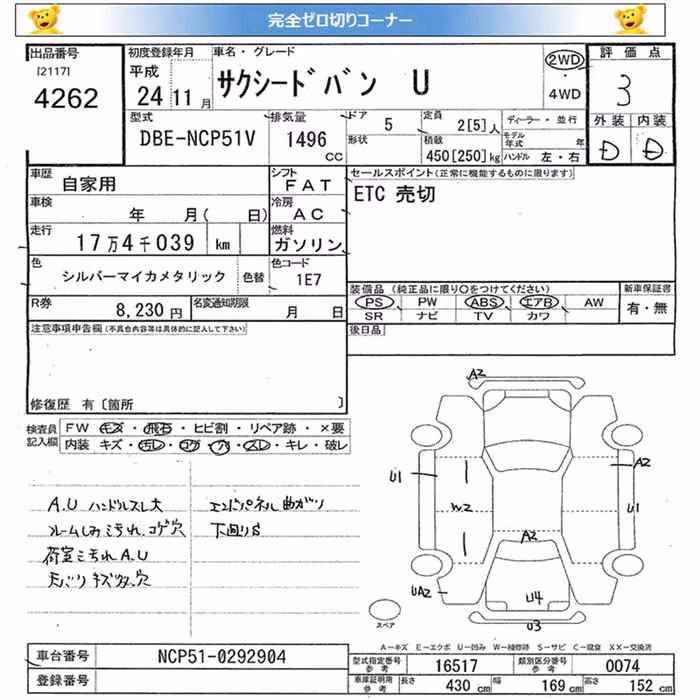 完全ゼロ切りコーナー
出品番号
[2117]
4262
初度登録年月
平成
24 11月
車名・グレード
サクシードバン U
2WD
・
4WD
評価点
3
外装 内装
D D
型式
DBE-NCP51V
排気量
1496
CC
ドア
5
形状
定員
2[5]人
積載
450[250]kg
ディーラー・並行
モデル年式 年
ハンドル 左・右
車歴
自家用
シフト
FAT
車検
年 月( 日)
冷房
AC
走行
17万4千039 km
燃料
ガソリン
色
シルバーマイカメタリック
色替
色コード
1E7
R券
8,230円
名変通知期限
月 日
セールスポイント(正常に機能するものに限ります)
ETC 売切
装備品(純正品に限り○をつけてください)
PS PW ABS エアB AW
SR ナビ TV カワ
新車保証書
有・無
後日品
注意事項申告欄(不具合内容等は具体的に記入して下さい)
修復歴 有〔箇所 〕
検査員記入欄
FW キズ・飛石・ヒビ割・リペア跡・×要
内装 キズ・汚レ・コゲ・穴・スレ・キレ・破レ
A.U ハンドルスレ大
ルームしみ汚れ、コゲ穴
荷室汚れA.U
キズ 穴
エンドパネル曲がり
下回りS
A2
A2
U1
W2
U1
A2
UA2
U4
U3
スペア
A-キズ E-エクボ U-凹み W-補修跡 S-サビ C-腐食 XX-交換済
車台番号
NCP51-0292904
登録番号
型式指定番号
参考
16517
類別区分番号
参考
0074
車庫証明用
参考
長さ
430 cm
幅
169 cm
高さ
152 cm